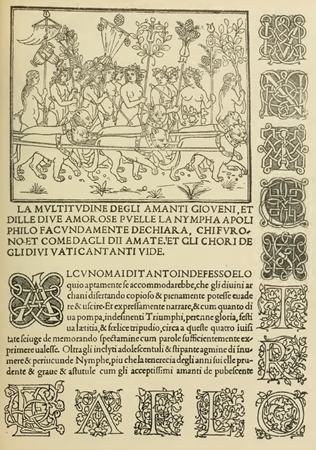 LA MVLTITVDINE DEGLI AMANTI GIOVENI, ET
DILLE DIVE AMOROSE PVELLE LA NYMPHA APOLI
PHILO FACVNDAMENTE DECHIARA, CHI FVRO-
NO ET COME DAGLI DII AMATE. ET GLI CHORI DE
GLI DIVI VATI CANTANTI VIDE.
ALCVNO MAI DI TANTO INDEFESSO ELO
quio aptamente se accommodarebbe, che gli diuini ar
chani disertando copioso & pienamente potesse euade
re & uscire. Et expressamente narrare, & cum quanto di
ua pompa, indesinenti Triumphi, perenne gloria, festi
ua lætitia, & fœlice tripudio, circa a queste quatro iuisi
tate seiuge de memorando spectamine cum parole sufficientemente ex
primere ualesse. Oltra gli inclyti adolescentuli & stipante agmine di inu
mere & periucunde Nymphe, piu che la tenerecia degli anni sui elle pru
dente & graue & astutule cum gli acceptissimi amanti de pubescente
T
E A E L O